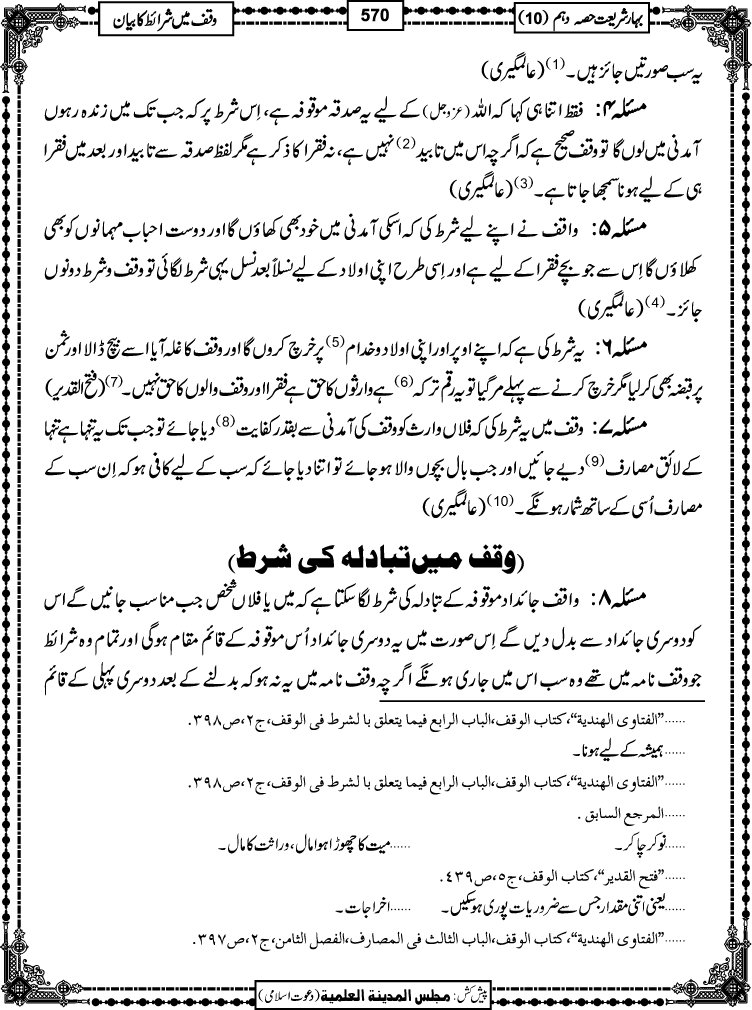 بہار شریعت حصہ دہم (10)
570
وقف میں شرائط کا بیان
یہ سب صورتیں جائز ہیں۔(1) (عالمگیری)
مسئلہ ۴: فقط اتنا ہی کہا کہ اللہ (عزوجل) کے لیے یہ صدقہ موقوفہ ہے، اِس شرط پر کہ جب تک میں زندہ رہوں
آمدنی میں لوں گا تو وقف صحیح ہے کہ اگرچہ اس میں تابید(2) نہیں ہے، نہ فقرا کا ذکر ہے مگر لفظ صدقہ سے تابید اور بعد میں فقرا
ہی کے لیے ہونا سمجھا جاتا ہے۔(3) (عالمگیری)
مسئلہ ۵: واقف نے اپنے لیے شرط کی کہ اسکی آمدنی میں خود بھی کھاؤں گا اور دوست احباب مہمانوں کو بھی
کھلاؤں گا اِس سے جو بچے فقرا کے لیے ہے اور اِسی طرح اپنی اولاد کے لیے نسلاً بعد نسل یہی شرط لگائی تو وقف و شرط دونوں
جائز۔(4) (عالمگیری)
مسئلہ ۶: یہ شرط کی ہے کہ اپنے اوپر اور اپنی اولاد و خدام(5) پر خرچ کروں گا اور وقف کا غلہ آیا اسے بیچ ڈالا اور ثمن
پر قبضہ بھی کر لیا مگر خرچ کرنے سے پہلے مر گیا تو یہ رقم ترکہ(6) ہے وارثوں کا حق ہے فقرا اور وقف والوں کا حق نہیں۔(7) (فتح القدیر)
مسئلہ ۷: وقف میں یہ شرط کی کہ فلاں وارث کو وقف کی آمدنی سے بقدر کفایت(8) دیا جائے تو جب تک یہ تنہا ہے تنہا
کے لائق مصارف(9) دیے جائیں اور جب بال بچوں والا ہو جائے تو اتنا دیا جائے کہ سب کے لیے کافی ہو کہ اِن سب کے
مصارف اُسی کے ساتھ شمار ہونگے۔(10) (عالمگیری)
(وقف میں تبادلہ کی شرط)
مسئلہ ۸: واقف جائداد موقوفہ کے تبادلہ کی شرط لگا سکتا ہے کہ میں یا فلاں شخص جب مناسب جانیں گے اس
کو دوسری جائداد سے بدل دیں گے اِس صورت میں یہ دوسری جائداد اُس موقوفہ کے قائم مقام ہوگی اور تمام وہ شرائط
جو وقف نامہ میں تھے وہ سب اس میں جاری ہونگے اگرچہ وقف نامہ میں یہ نہ ہو کہ بدلنے کے بعد دوسری پہلی کے قائم
......"الفتاوی الھندیۃ"، کتاب الوقف، الباب الرابع فیما یتعلق بالشرط فی الوقف، ج۲، ص۳۹۸.
......ہمیشہ کے لیے ہونا۔
......"الفتاوی الھندیۃ"، کتاب الوقف، الباب الرابع فیما یتعلق بالشرط فی الوقف، ج۲، ص۳۹۸.
......المرجع السابق .
......نوکر چاکر۔ ......میت کا چھوڑا ہوا مال، وراثت کا مال۔
......"فتح القدیر"، کتاب الوقف، ج۵، ص۴۳۹.
......یعنی اتنی مقدار جس سے ضروریات پوری ہو سکیں۔ ......اخراجات۔
......"الفتاوی الھندیۃ"، کتاب الوقف، الباب الثالث فی المصارف، الفصل الثامن، ج۲، ص۳۹۷.
پیش کش: مجلس المدینۃ العلمیۃ (دعوت اسلامی)